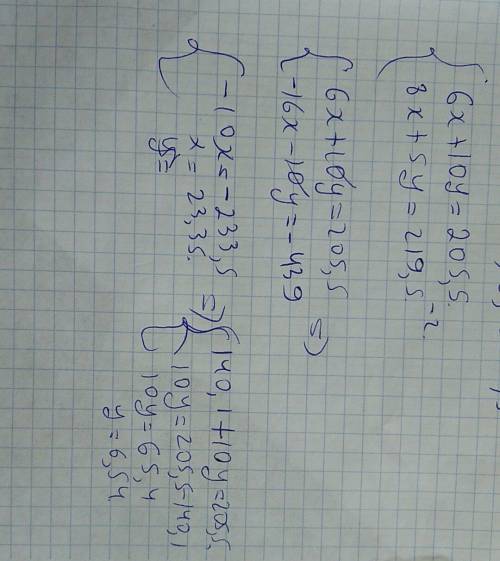 6x+10y=205,5.
8x+5y=219,5. -2.
6x+10y=205,5
-16x-10y=-439 =>
-10x=-233,5 =>
x=23,35.
y=
140,1+10y=205,5.
10y=205,5-140,1
10y=65,4
y=6,54